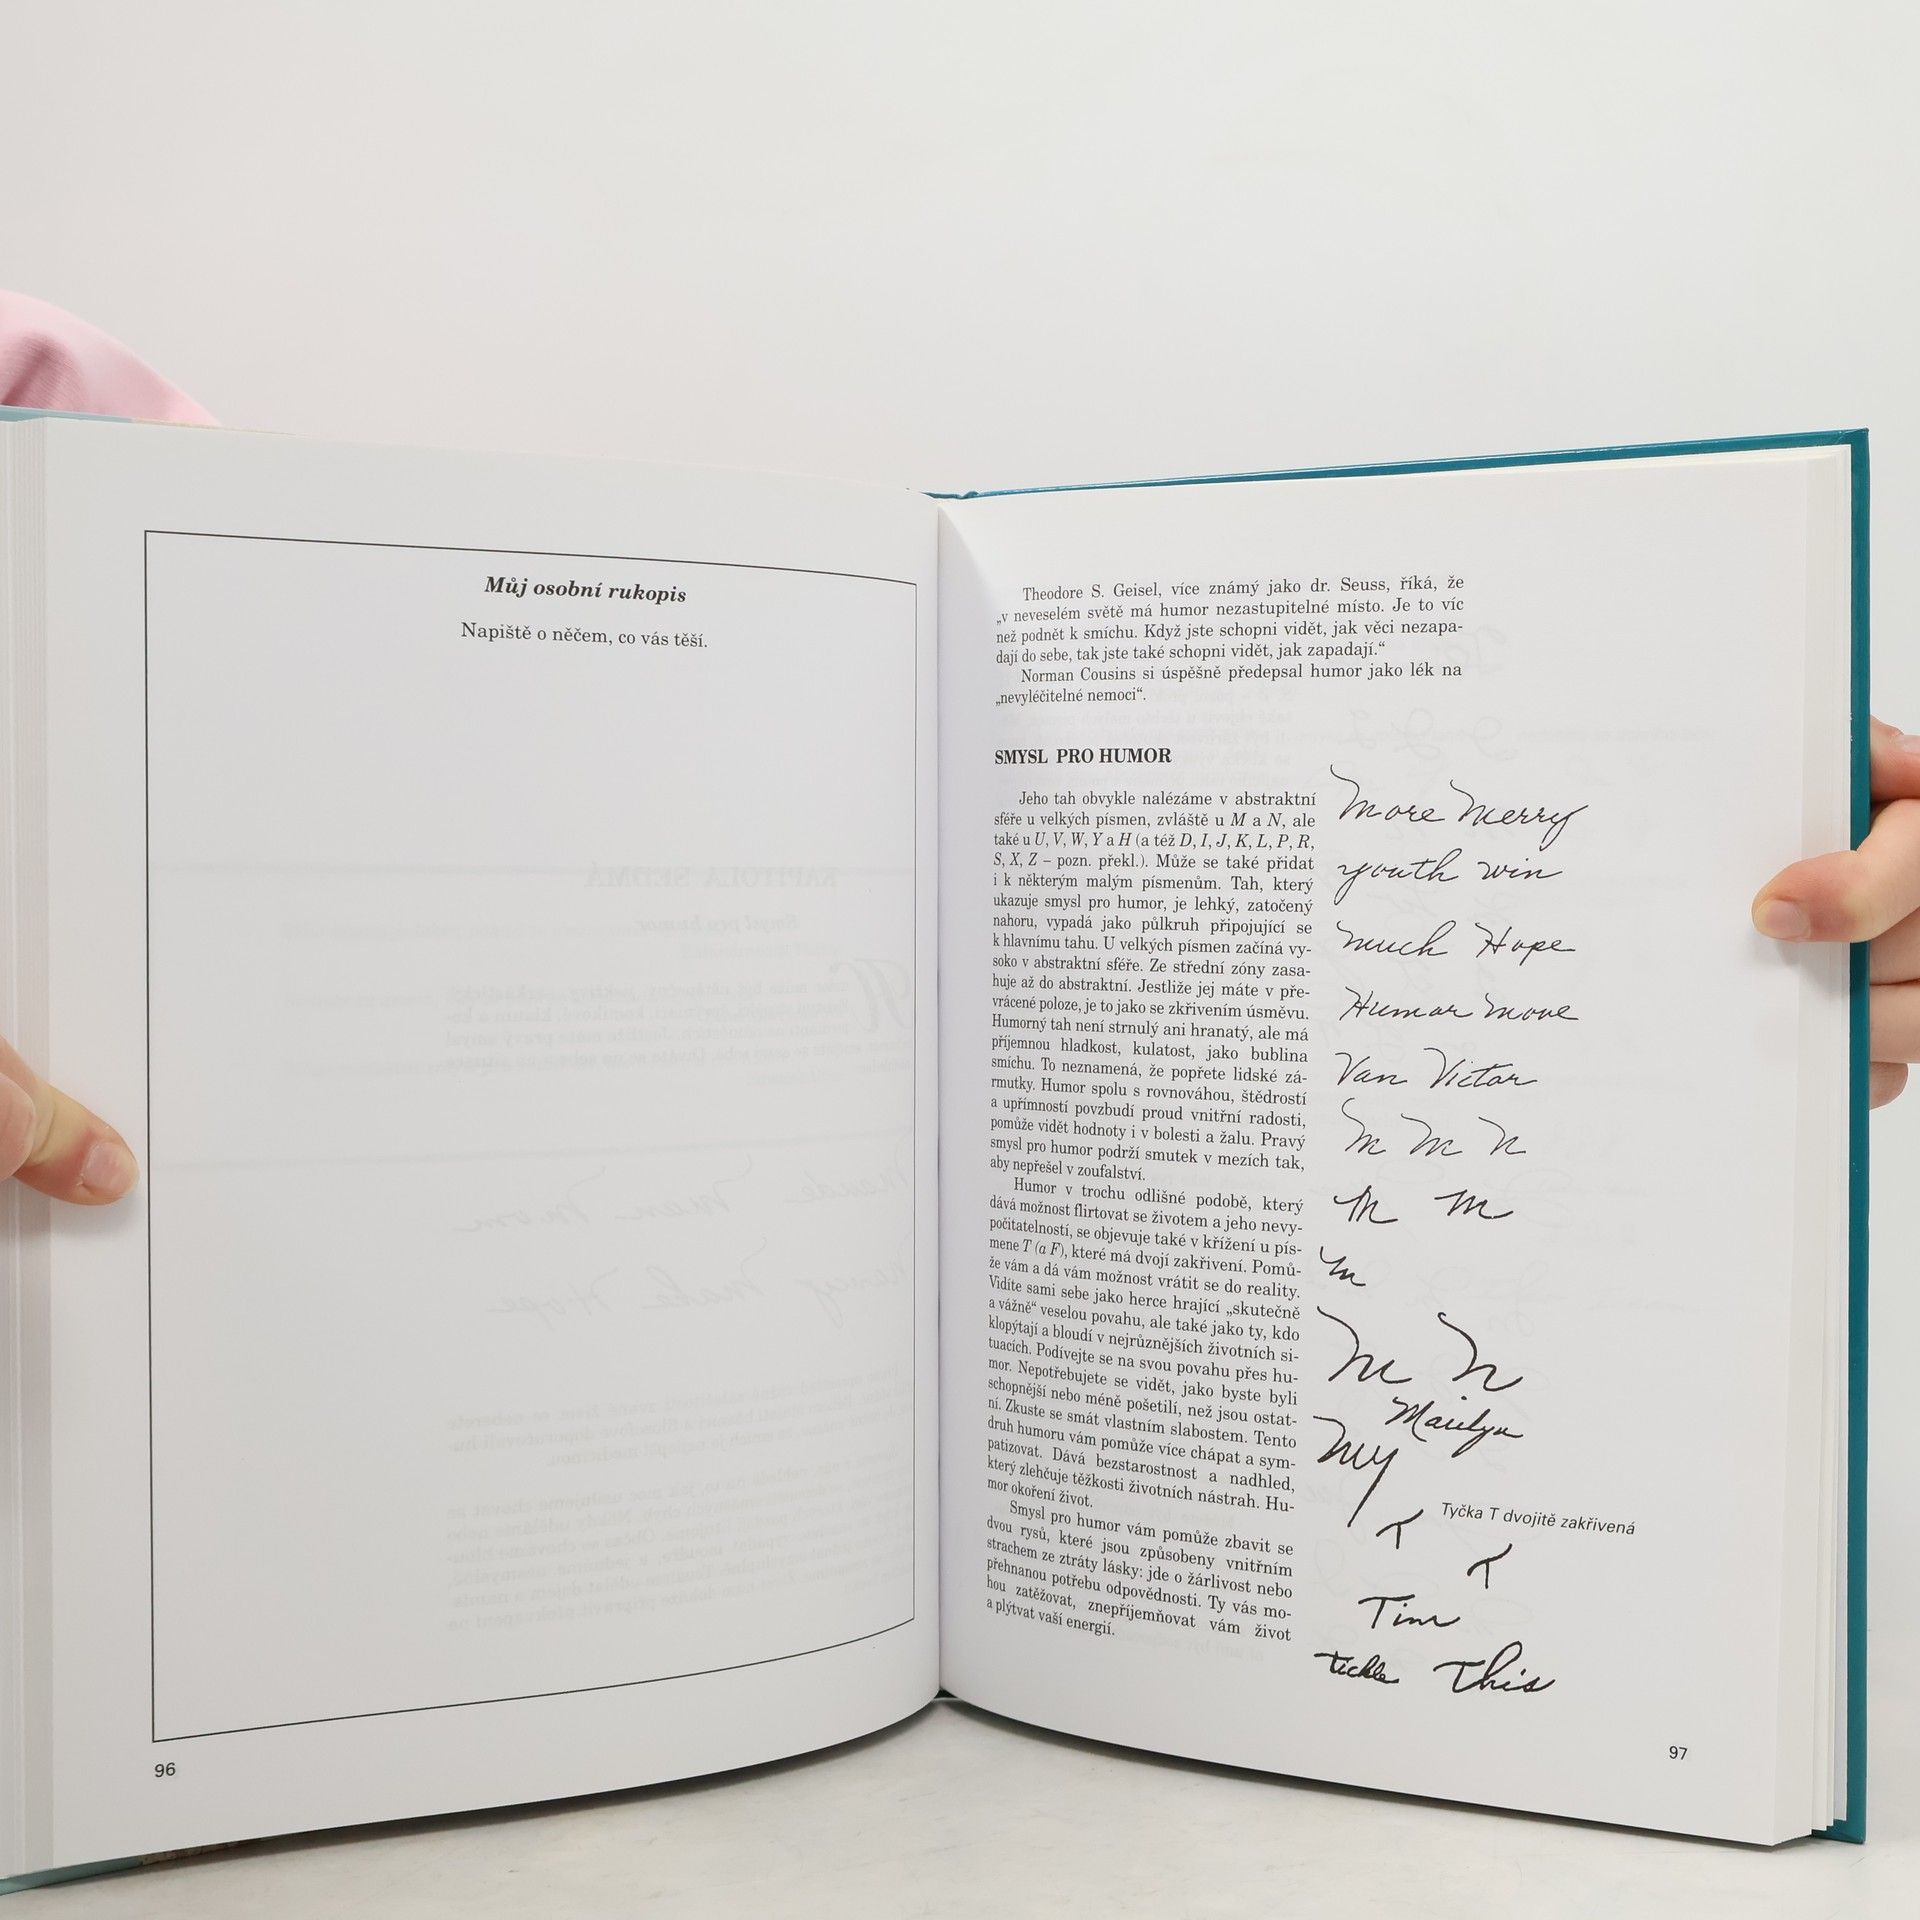 Můj osobní rukopis
Napiště o něčem, co vás těší.
96
Theodore S. Geisel, více známý jako dr. Seuss, říká, že
„v neveselém světě má humor nezastupitelné místo. Je to víc
než podnět k smíchu. Když jste schopni vidět, jak věci nezapa-
dají do sebe, tak jste také schopni vidět, jak zapadají.“
Norman Cousins si úspěšně předepsal humor jako lék na
„nevyléčitelné nemoci“.
SMYSL PRO HUMOR
Jeho tah obvykle nalézáme v abstraktní
sféře u velkých písmen, zvláště u M a N, ale
také u U, V, W, Y a H (a též D, I, J, K, L, P, R,
S, X, Z – pozn. překl.). Může se také přidat
i k některým malým písmenům. Tah, který
ukazuje smysl pro humor, je lehký, zatočený
nahoru, vypadá jako půlkruh připojující se
k hlavnímu tahu. U velkých písmen začíná vy-
soko v abstraktní sféře. Ze střední zóny zasa-
huje až do abstraktní. Jestliže jej máte v pře-
vrácené poloze, je to jako se zkřivením úsměvu.
Humorný tah není strnulý ani hranatý, ale má
příjemnou hladkost, kulatost, jako bublina
smíchu. To neznamená, že popřete lidské zá-
rmutky. Humor spolu s rovnováhou, štědrostí
a upřímností povzbudí proud vnitřní radosti,
pomůže vidět hodnoty i v bolesti a žalu. Pravý
smysl pro humor podrží smutek v mezích tak,
aby nepřešel v zoufalství.
Humor v trochu odlišné podobě, který
dává možnost flirtovat se životem a jeho nevy-
počitatelností, se objevuje také v křížení u pís-
mene T (a F), které má dvojí zakřivení. Pomů-
že vám a dá vám možnost vrátit se do reality.
Vidíte sami sebe jako herce hrající „skutečně
a vážně“ veselou povahu, ale také jako ty, kdo
klopýtají a bloudí v nejrůznějších životních si-
tuacích. Podívejte se na svou povahu přes hu-
mor. Nepotřebujete se vidět, jako byste byli
schopnější nebo méně pošetilí, než jsou ostat-
ní. Zkuste se smát vlastním slabostem. Tento
druh humoru vám pomůže více chápat a sym-
patizovat. Dává bezstarostnost a nadhled,
který zlehčuje těžkosti životních nástrah. Hu-
mor okoření život.
Smysl pro humor vám pomůže zbavit se
dvou rysů, které jsou způsobeny vnitřním
strachem ze ztráty lásky: jde o žárlivost nebo
přehnanou potřebu odpovědnosti. Ty vás mo-
hou zatěžovat, znepříjemňovat vám život
a plýtvat vaší energií.
More Merry
youth win
much Hope
Humor move
Van Victor
M M N
M M
m
M N
Marilyn
My
T
Tyčka T dvojitě zakřivená
T
Tim
tickle This
97